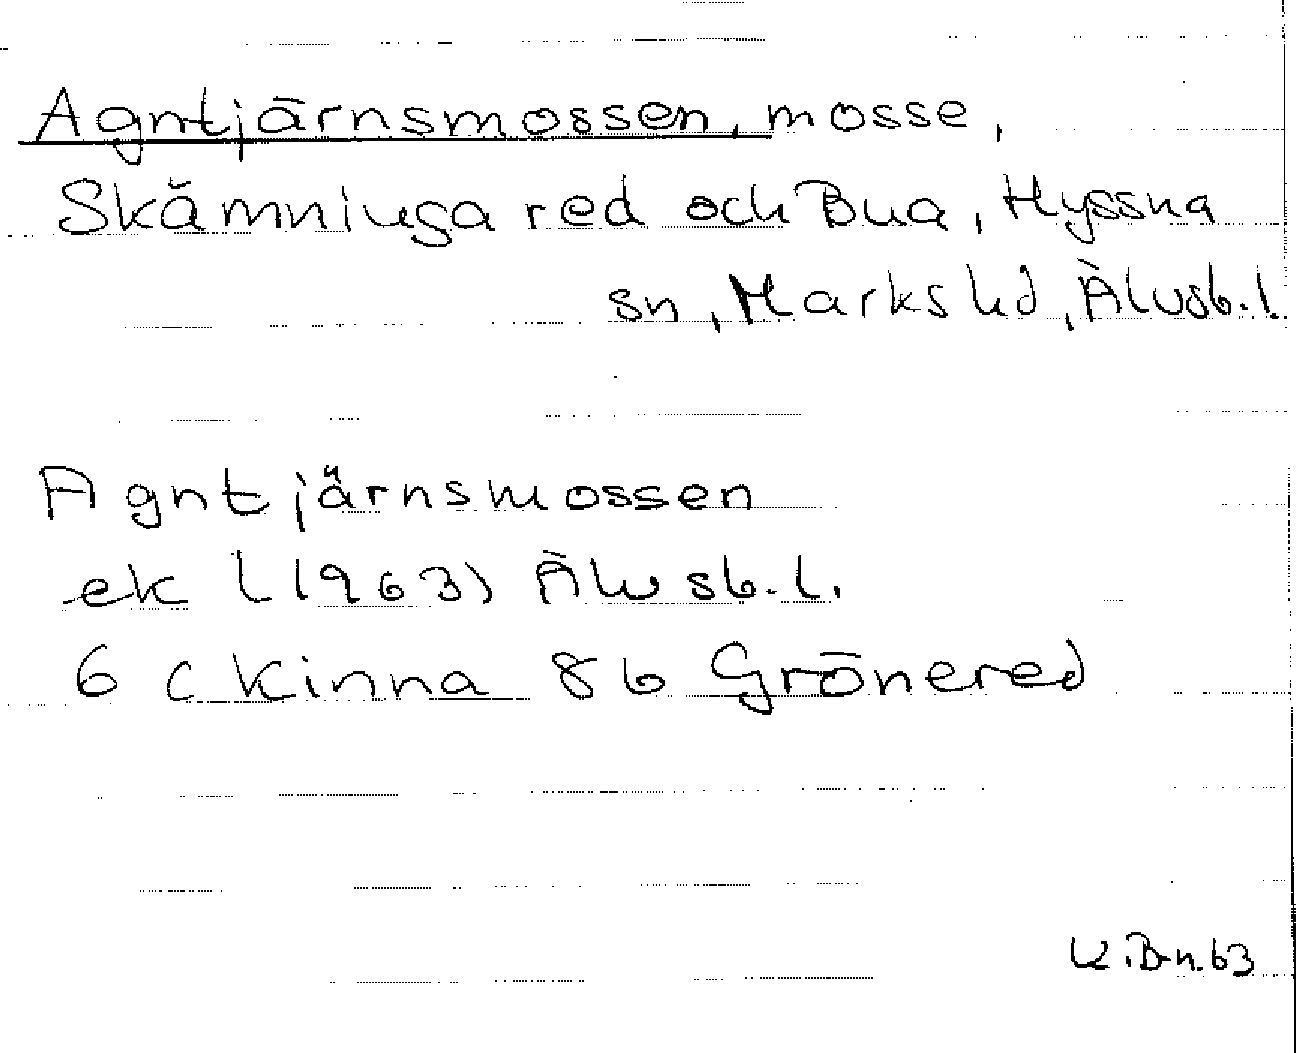 Agntjärnsmossen, mosse,
Skämningared och Bua, Hyssna
sn, Marks hd, Älvsb.l.
Agntjärnsmossen
ek l (1963) Älvsb.l.
6 C Kinna 8b Grönered
K.B-n.63